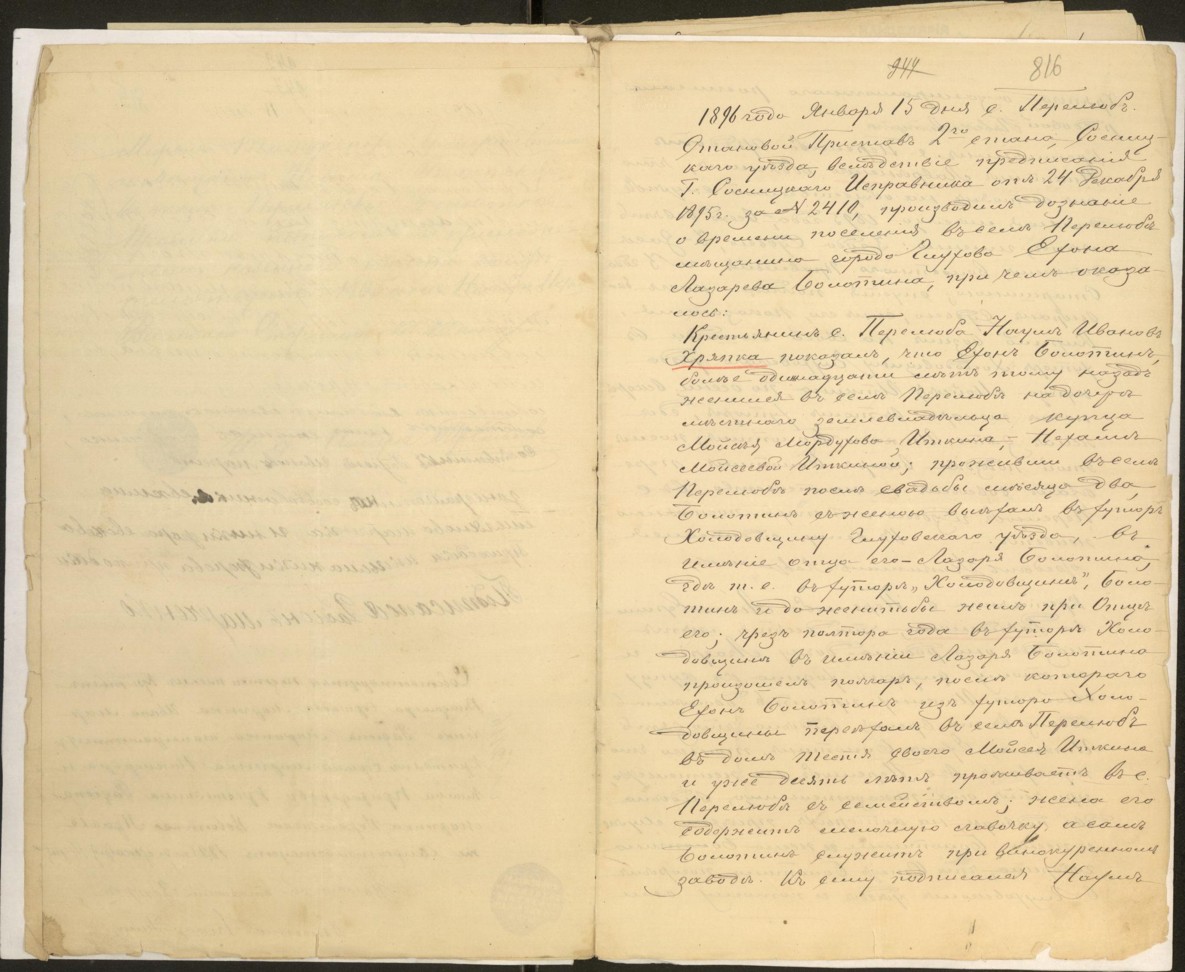 244 816
1896 года Января 15 дня с. Перелюбъ.
Становой Приставъ 2го стана, Сосниц-
каго уѣзда, вслѣдствіе предписанія
Г. Сосницкаго Исправника отъ 24 Декабря
1895 г. за № 2410, производилъ дознаніе
о времени поселенія въ селѣ Перелюбѣ
мѣщанина города Глухова Ехона
Лазарева Болотина, при чемъ оказа-
лось:
Крестьянинъ с. Перелюба Наумъ Ивановъ
Хряпка показалъ, что Ехонъ Болотинъ,
болѣе одинадцати лѣтъ тому назадъ
женился въ селѣ Перелюбѣ на дочерѣ
мѣстнаго землевладѣльца купца
Мойсѣя Мордухова Иткина, - Нехамѣ
Мойсеевой Иткиной; проживши въ селѣ
Перелюбѣ послѣ свадьбы мѣсяца два,
Болотинъ съ женою выѣхалъ въ хуторъ
Холодовщину Глуховскаго уѣзда, въ
имѣніе отца его - Лазаря Болотина;
гдѣ т. е. въ хуторѣ „Холодовщинѣ", Боло-
тинъ и до женитьбы жилъ при Отцѣ
его; чрезъ полтора года въ хуторѣ Холо-
довщинѣ въ имѣніи Лазаря Болотина
произошелъ пожаръ, послѣ котораго
Ехонъ Болотинъ изъ хутора Холо-
довщины переѣхалъ въ село Перелюбъ
въ домъ тестя своего Мойсея Иткина
и уже десять лѣтъ проживаетъ въ с.
Перелюбѣ съ семействомъ; жена его
содержитъ мелочную лавочку, а самъ
Болотинъ служитъ при винокуренномъ
заводѣ. Къ сему подписался Наумъ